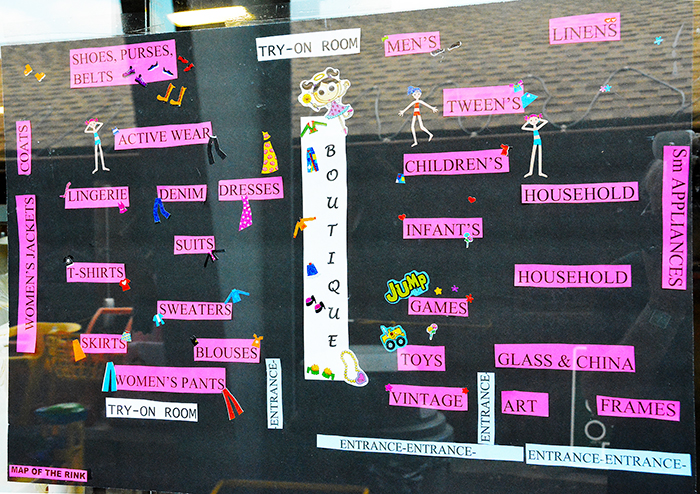 TRY-ON ROOM
MEN'S
LINENS
SHOES, PURSES,
BELTS
TWEEN'S
COATS
ACTIVE WEAR
BOUTIQUE
CHILDREN'S
Sm APPLIANCES
LINGERIE
DENIM
DRESSES
HOUSEHOLD
WOMEN'S JACKETS
INFANT'S
SUITS
T-SHIRTS
HOUSEHOLD
JUMP
GAMES
SWEATERS
SKIRTS
BLOUSES
TOYS
GLASS & CHINA
WOMEN'S PANTS
ENTRANCE-
VINTAGE
ENTRANCE
ART
FRAMES
TRY-ON ROOM
ENTRANCE-ENTRANCE-
ENTRANCE-ENTRANCE-
MAP OF THE RINK